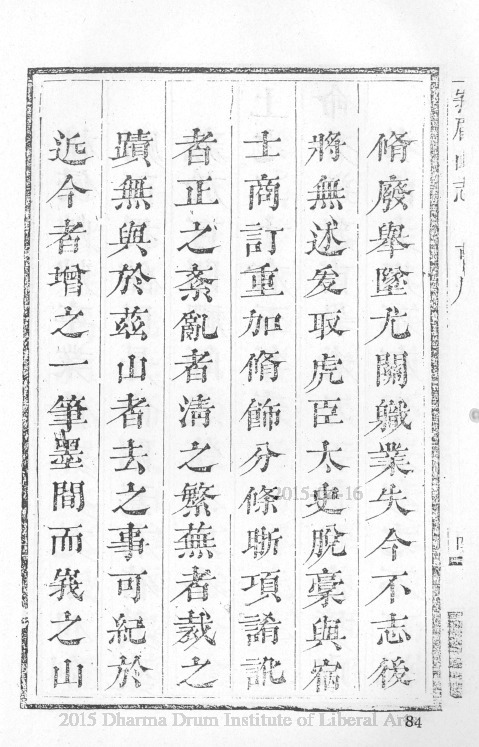 脩廢舉墜尤關職業失今不志後
將無述爰取虎臣太史脫稾與宿
士商訂重加脩飾分條晰項譌訛
者正之紊亂者清之繁蕪者裁之
蹟無與於茲山者去之事可紀於
近今者增之一筆墨間而峩之山
84
2015 Dharma Drum Institute of Liberal Ar